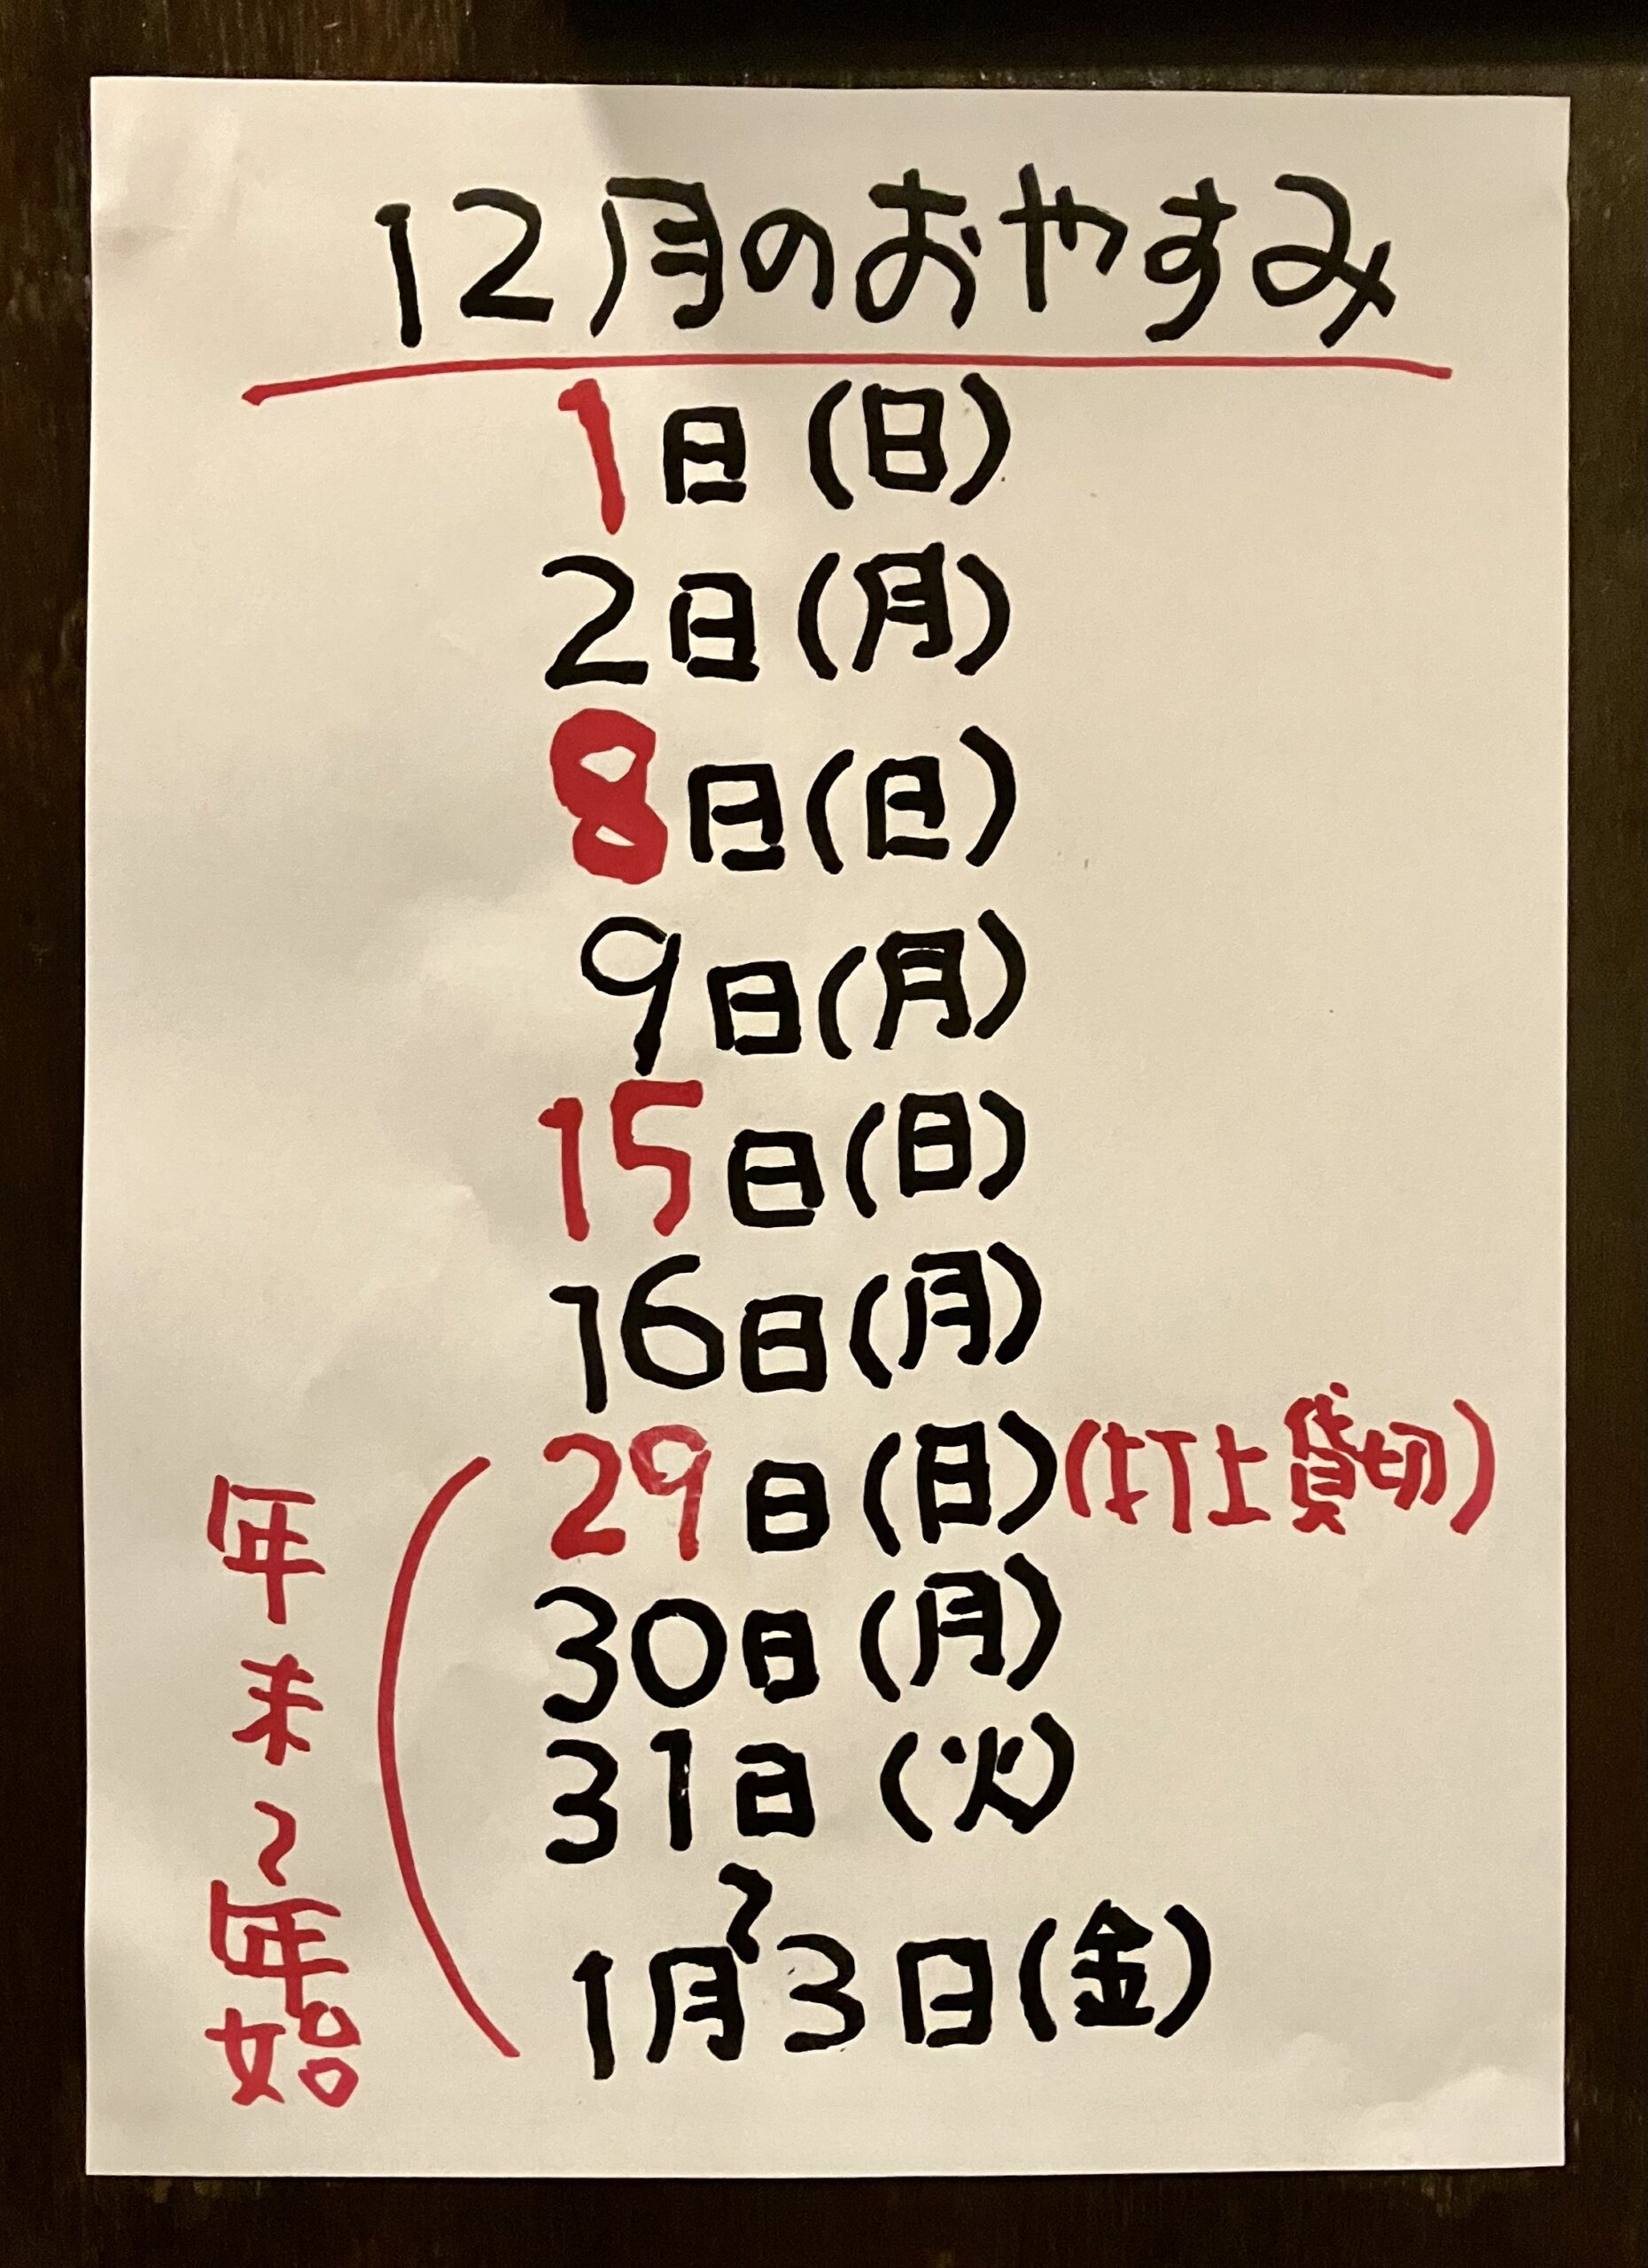 12月のおやすみ
1日(日)
2日(月)
8日(日)
9日(月)
15日(日)
16日(月)
29日(日)(打上貸切)
30日(月)
31日(火)
〜
1月3日(金)
年末〜年始